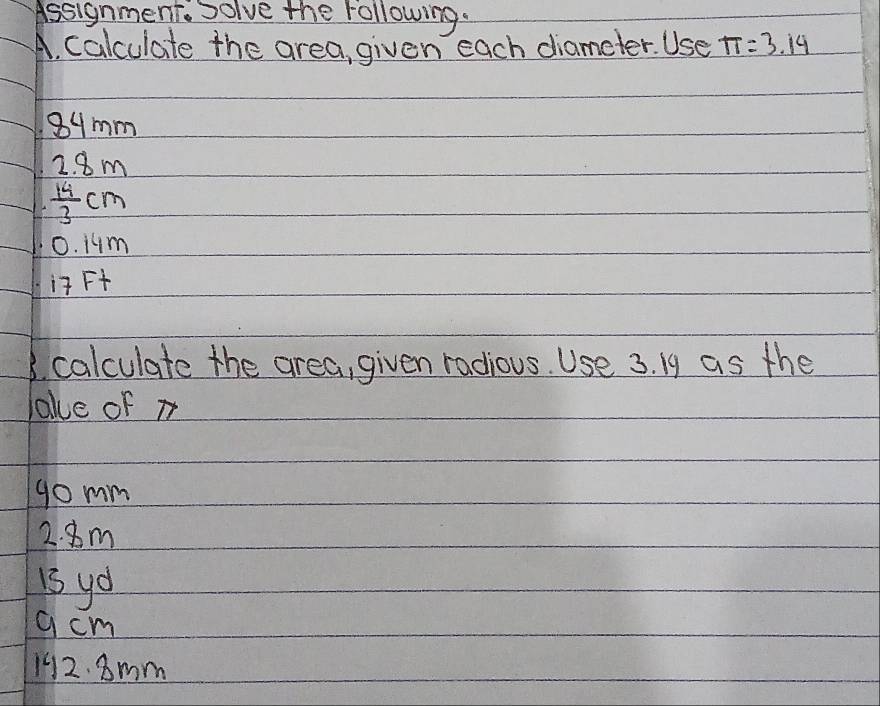 Assignment. Solve the Following.
A. Calculate the area, given each diameter. Use π = 3.14
84 mm
2.8 m
14/3 cm
0.14m
17 Ft
B. calculate the area, given radious. Use 3.14 as the
value of π
40 mm
2.8m
15 yd
9 cm
142.8mm